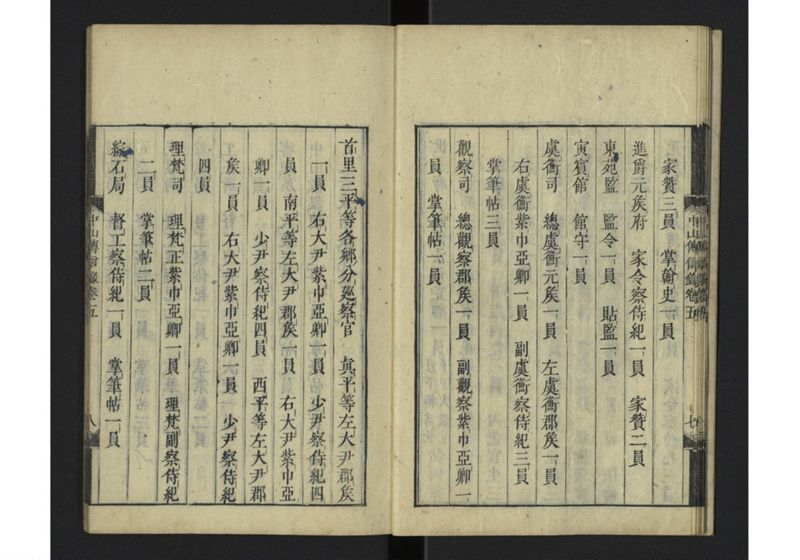 家贊三員　掌翰史一員
進爵元矦府　家令察侍紀一員　家贊二員
東苑監　監令一員　貼監一員
寅賓館　館守一員
虞衡司　總虞衡元矦一員　左虞衡郡矦一員
右虞衡紫巾亞卿一員　副虞衡察侍紀三員
掌筆帖三員
觀察司　總觀察郡矦一員　副觀察紫巾亞卿一
員　掌筆帖一員
中山傳信錄卷五
七
首里三平等各鄉分廵察官　眞平等左大尹郡矦
一員　右大尹紫巾亞卿一員　少尹察侍紀四
員　南平等左大尹郡矦一員　右大尹紫巾亞
卿一員　少尹察侍紀四員　西平等左大尹郡
矦一員　右大尹紫巾亞卿一員　少尹察侍紀
四員
理梵司　理梵正紫巾亞卿一員　理梵副察侍紀
二員　掌筆帖二員
綜石局　督工察侍紀一員　掌筆帖一員
中山傳信錄卷五
八